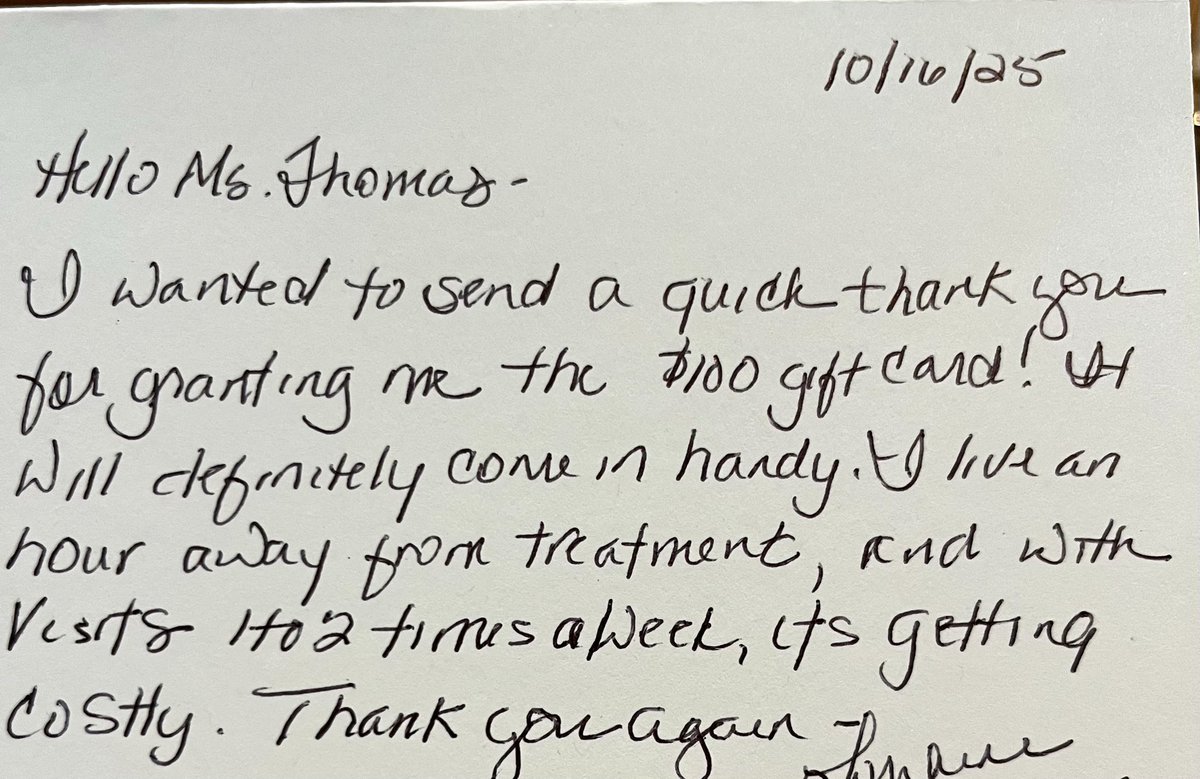 10/16/25
Hello Ms. Thomas-
I wanted to send a quick thank you
for granting me the $100 gift card! It
will definitely come in handy. I live an
hour away from treatment, and with
visits 1 to 2 times a week, its getting
costly. Thank you again -